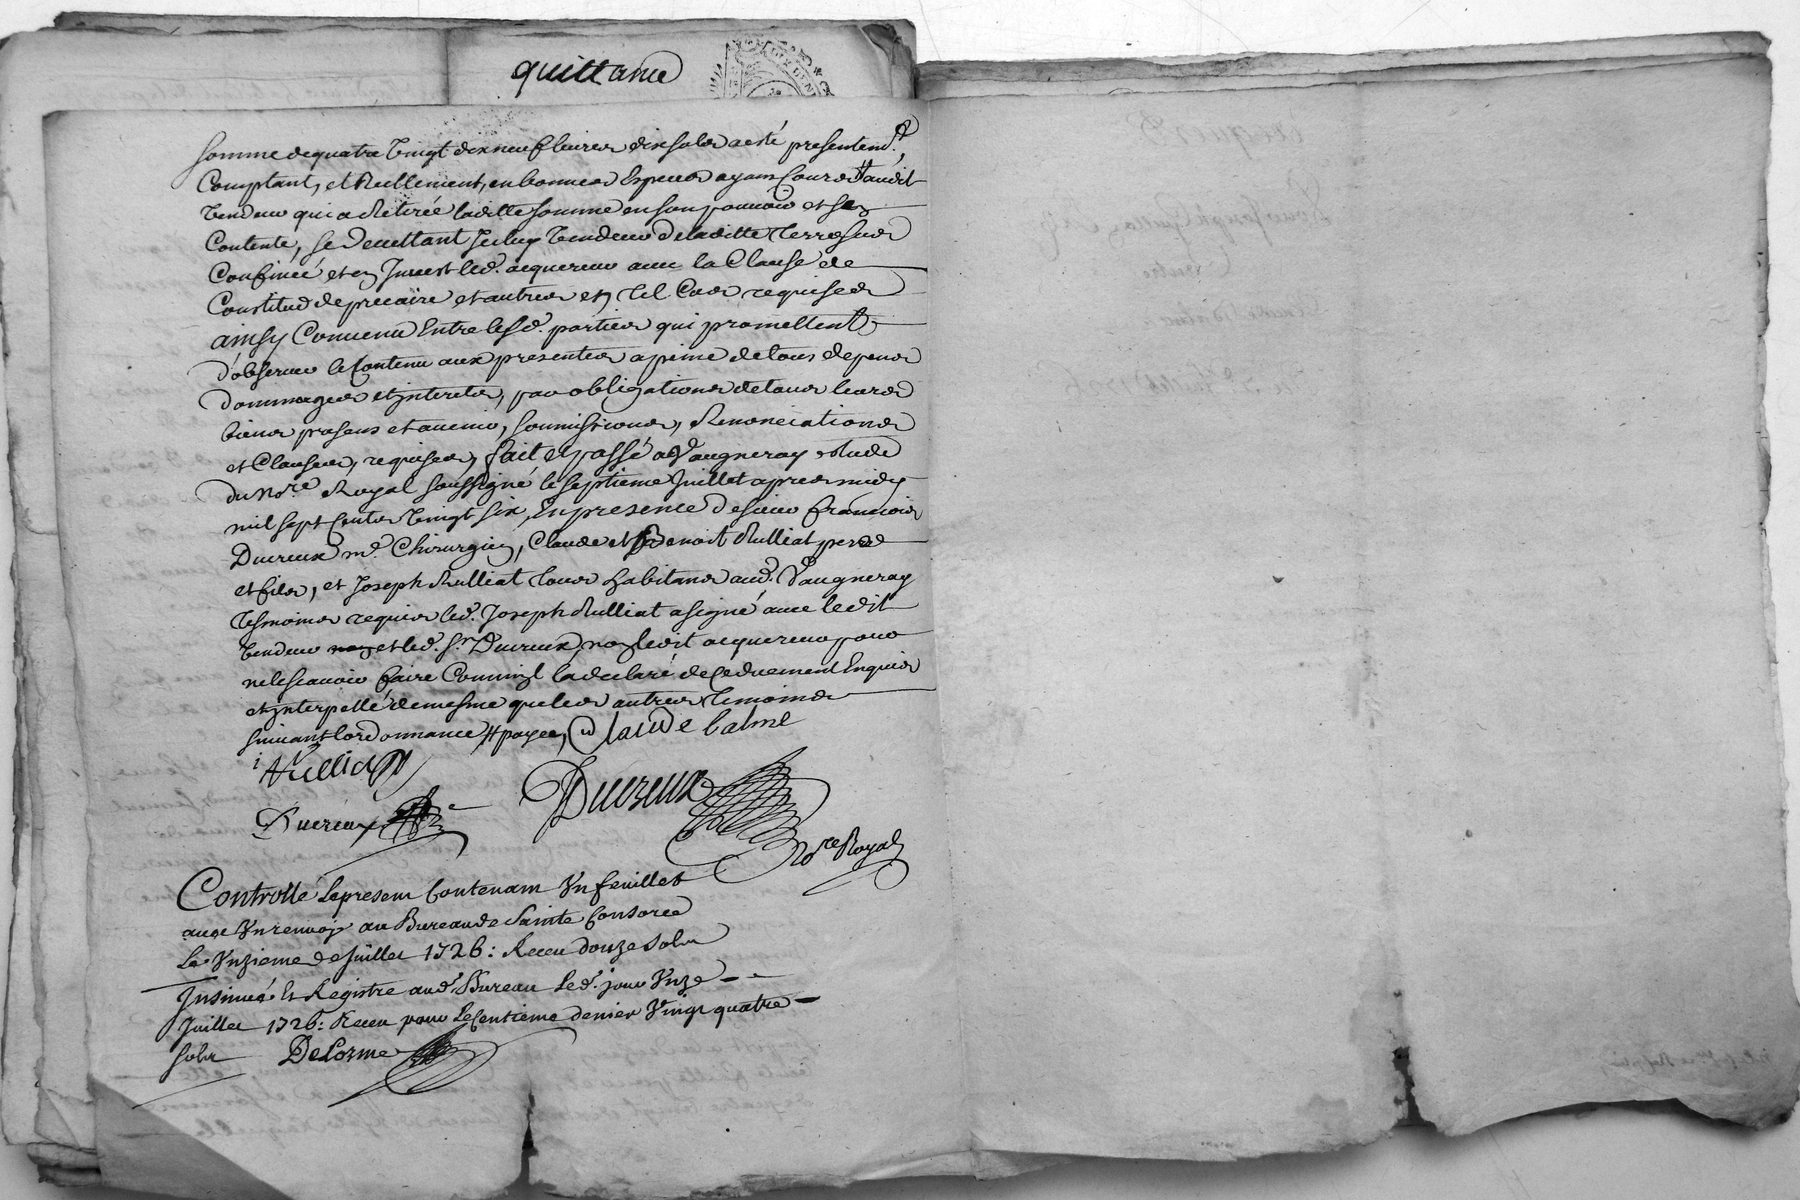 quittance
somme de quatre vingt dix neuf livres dix sols a esté presentem.t
Comptant, et Reellement, en bonnes Especes ayant Cours # audit
Vendeur qui a Retirée laditte somme en son pouvoir et s'en
Contente, se Devettant Iceluy Vendeur de laditte Terre sus
Confinée et en Invest led. acquereur avec la Clause de
Constitud de precaire et autres en tel Cas requises
ainsy Convenu Entre lesd. parties qui promettent
d'observer le Contenu aux presentes a peine de tous depens
dommages et interets, par obligations de tous leurs
biens presens et avenir, soumissions, Renonciations
et Clauses, requises, fait et passé a Vaugneray etude
du No.re Royal soussigné le septieme Juillet apres midy
mil sept Cents Vingt six, En presence de sieur francois
Ducreux m.e Chirurgien, Claude et Benoit Rulliat pere
et fils, et Joseph Rulliat tous habitans aud. Vaugneray
tesmoins requis led. Joseph Rulliat a signé avec ledit
Vendeur et led. S.r Ducreux, non ledit acquereur pour
ne le scavoir faire Comm'il la declaré de Ce duement Enquis
et interpellé de mesme que les autres temoins
suivant lordonnance # payée, Claude balme
j Rulliat
Ducreux
Ducreux
No.re Royal
Controllé le present Contenant Vn feuillet
avec Vn renvoy au Bureau de Sainte Consorce
Le Vnzieme de Juillet 1726: Receu douze sols
Insinué Et Registré aud. Bureau Led. jour Vnze
Juillet 1726: Receu pour Le Centieme denier Vingt quatre
sols DeLorme